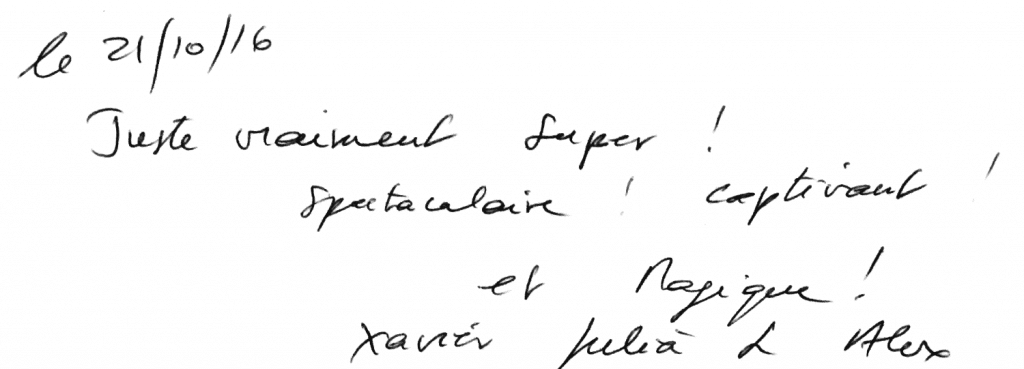 le 21/10/16
Juste vraiment super !
spectaculaire ! captivant !
et Magique !
Xavier Julia & Alex